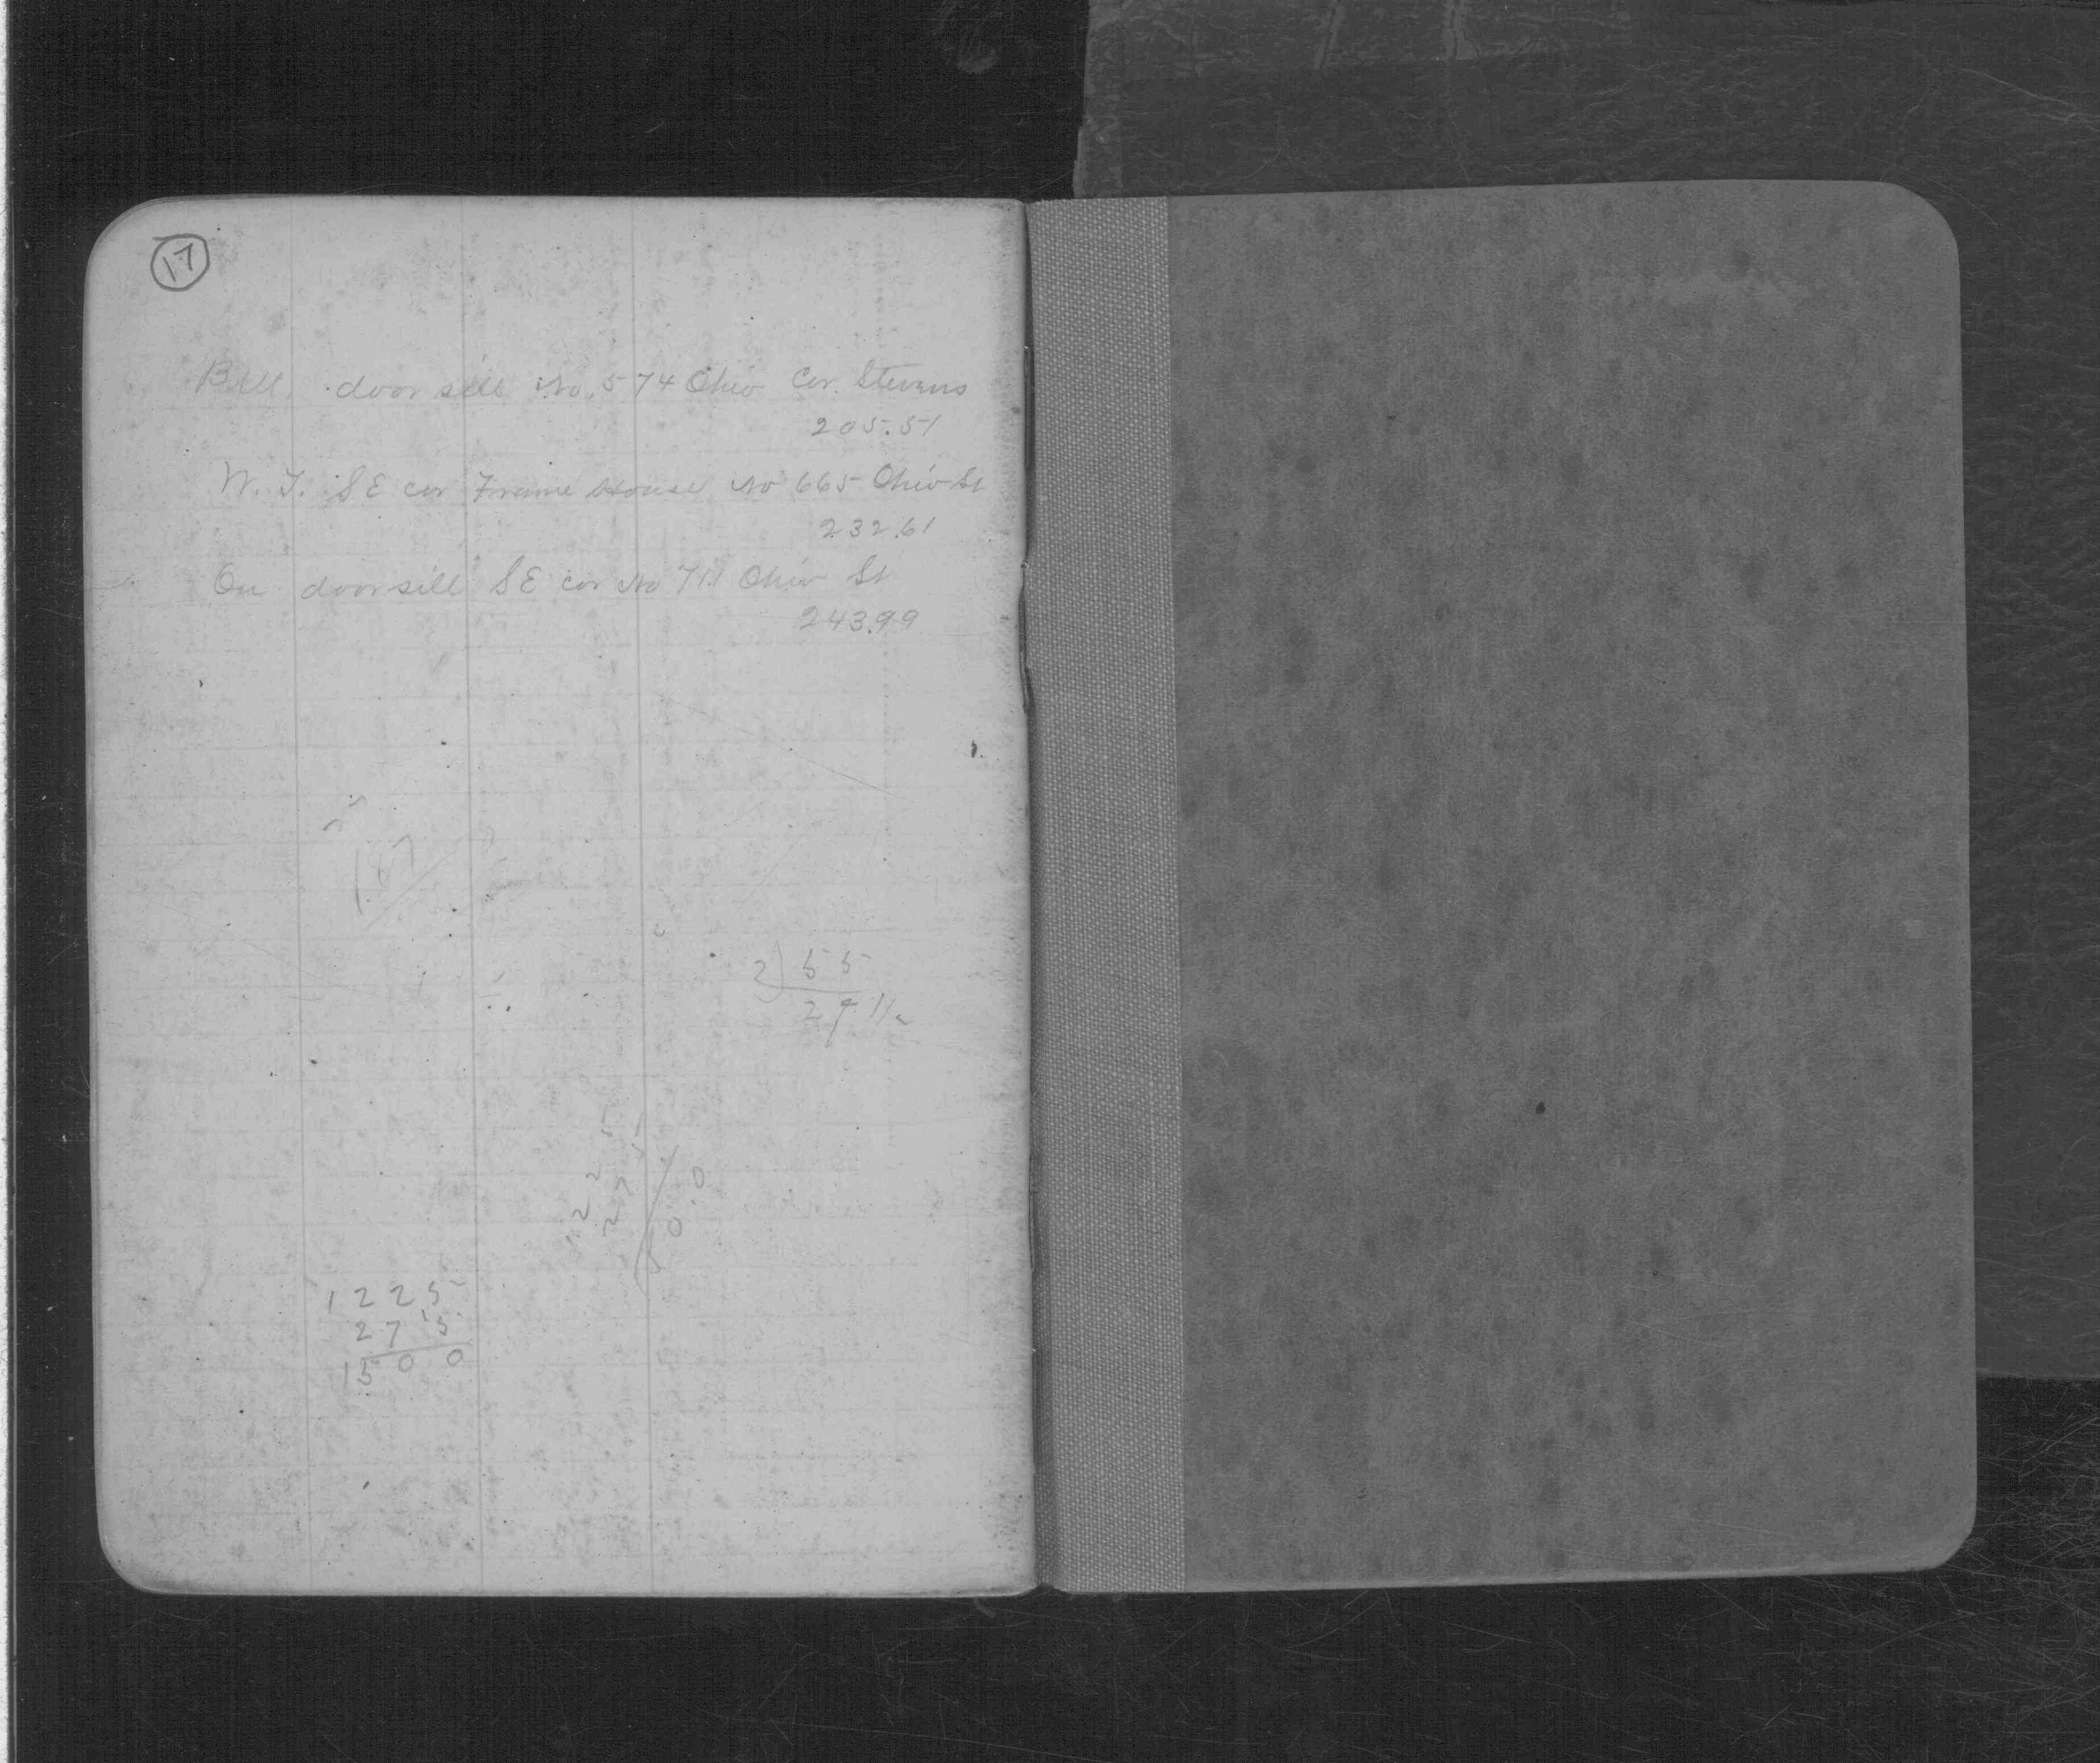 17
door sill No. 574 Ohio Cor. Stevens
205.51
W. T. SE cor Frame House No 665 Ohio St
232.61
On door sill SE cor No 711 Ohio St
243.99
2) 55
27 1/2
1225
275
1500